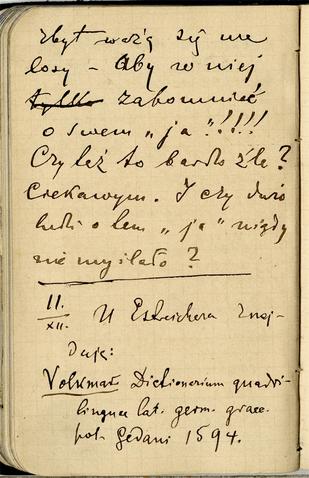 zbyt ważą się me
losy – Aby w niej
tylko zapomnieć
o swem „ja”!!!!
Czy też to bardzo źle?
Ciekawym. I czy dużo
ludzi o tem „ja” nigdy
nie myślało?
11.
XII. U Estreichera znaj-
duję:
Volkmar Dictionarium quadri-
lingue lat. germ. graec.
pol. Gedani 1594.